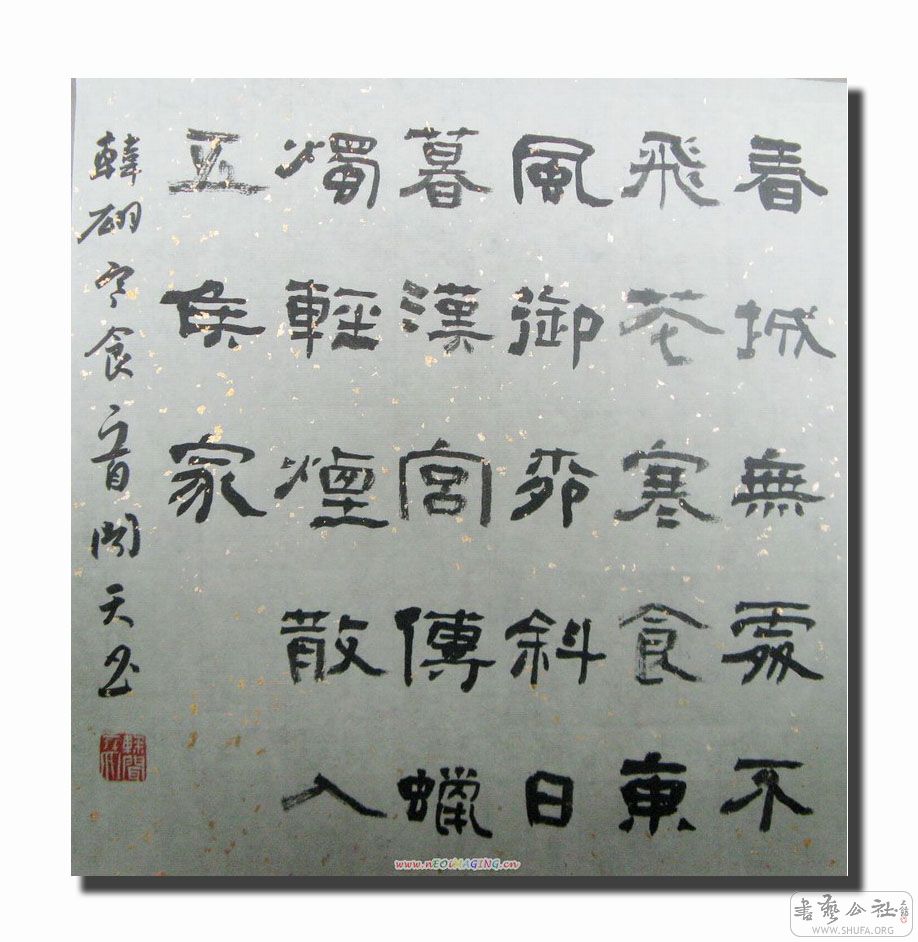 春城無處不
飛花寒食東
風御柳斜日
暮漢宮傳蠟
燭輕煙散入
五侯家
韓翃寒食一首聞天書
www.nEOiMAGING.cn
書藝公社
WWW.SHUFA.ORG